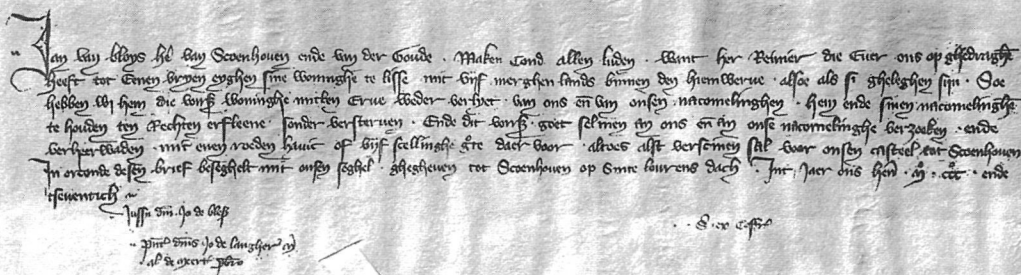 Jan van bloys he van Scoenhouen ende van der Goude · Maken cond allen luden · Want her Reinier die Euer ons op ghedraghē
heeft tot Enen vryen eyghen sine woninghe te lisse mit vijf merghen lands binnen den hiemwerue · alsoe als si gheleghen sijn · Soe
hebben wi hem die vorß woninghe mitten Erue weder verlyet · van ons eñ van onsen nacomelinghen · Hem ende sinen nacomelinghē
te houden ten Rechten erfleene sonder versteruen · Ende dit vorß · goet selmen an ons eñ an onse nacomelinghe verzoeken · ende
verheerwaden · mit enen roeden hauic of vijf scellinghe gͬte daer voor · altoes alst verscinen sal voor onsen casteel tot Scoenhouen
In orconde desen brief beseghelt mit onsen zeghel · ghegheuen tot Scoenhouen op sinte lourens dach · Int Jaer ons heñ · m̊ · ccc̊ · ende
tseuentich
Jussu dñi · Jo de bloß
· S · ex
p̃nt dñis · Jo de langher
al de